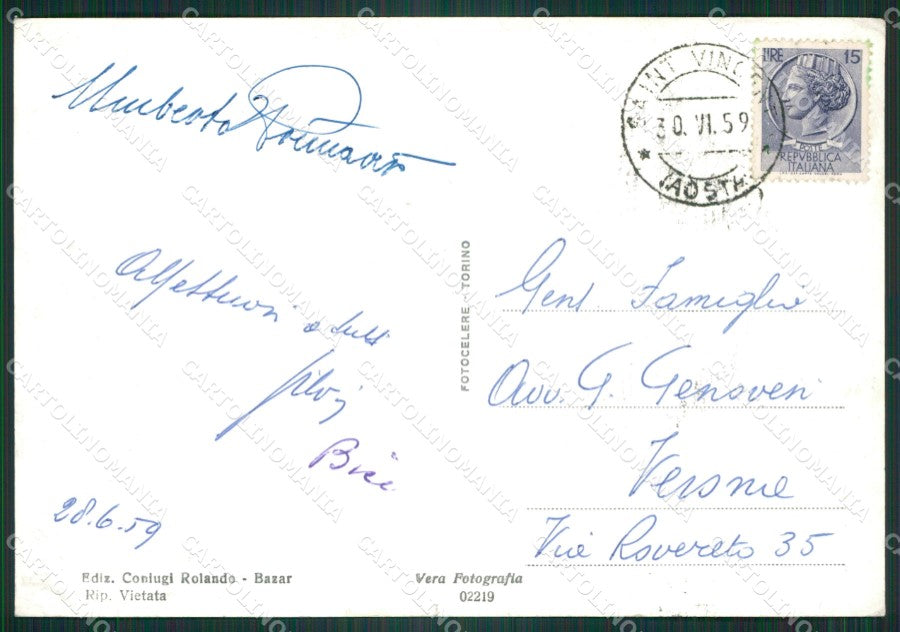 Umberto
Affettuosi a tutti
Silvi
Bice
28.6.59
Ediz. Coniugi Rolando - Bazar
Rip. Vietata
Vera Fotografia
02219
FOTOCELERE - TORINO
SAINT VINCENT
30.VI.59
(AOSTA)
LIRE 15
POSTE
REPVBBLICA
ITALIANA
Gent Famiglia
Avv. G. Genoveri
Via Rovereto 35
CARTOLINOMANIA